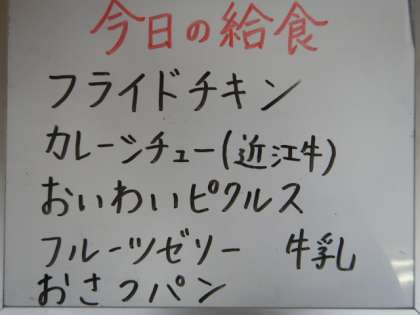 今日の給食
フライドチキン
カレーシチュー(近江牛)
おいわいピクルス
フルーツゼリー 牛乳
おさつパン